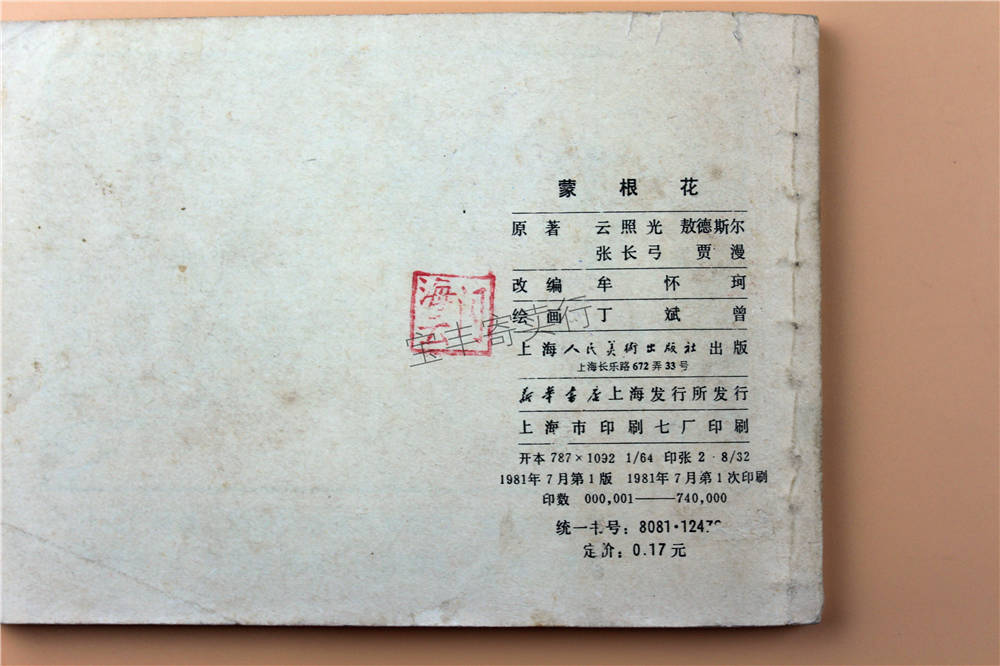 蒙根花
原著 云照光 敖德斯尔
张长弓 贾漫
改编 牟怀珂
绘画 丁斌曾
上海人民美术出版社出版
上海长乐路672弄33号
新华书店上海发行所发行
上海市印刷七厂印刷
开本 787×1092 1/64 印张 2·8/32
1981年7月第1版 1981年7月第1次印刷
印数 000,001——740,000
统一书号：8081·1247
定价：0.17元
宝丰寄卖行